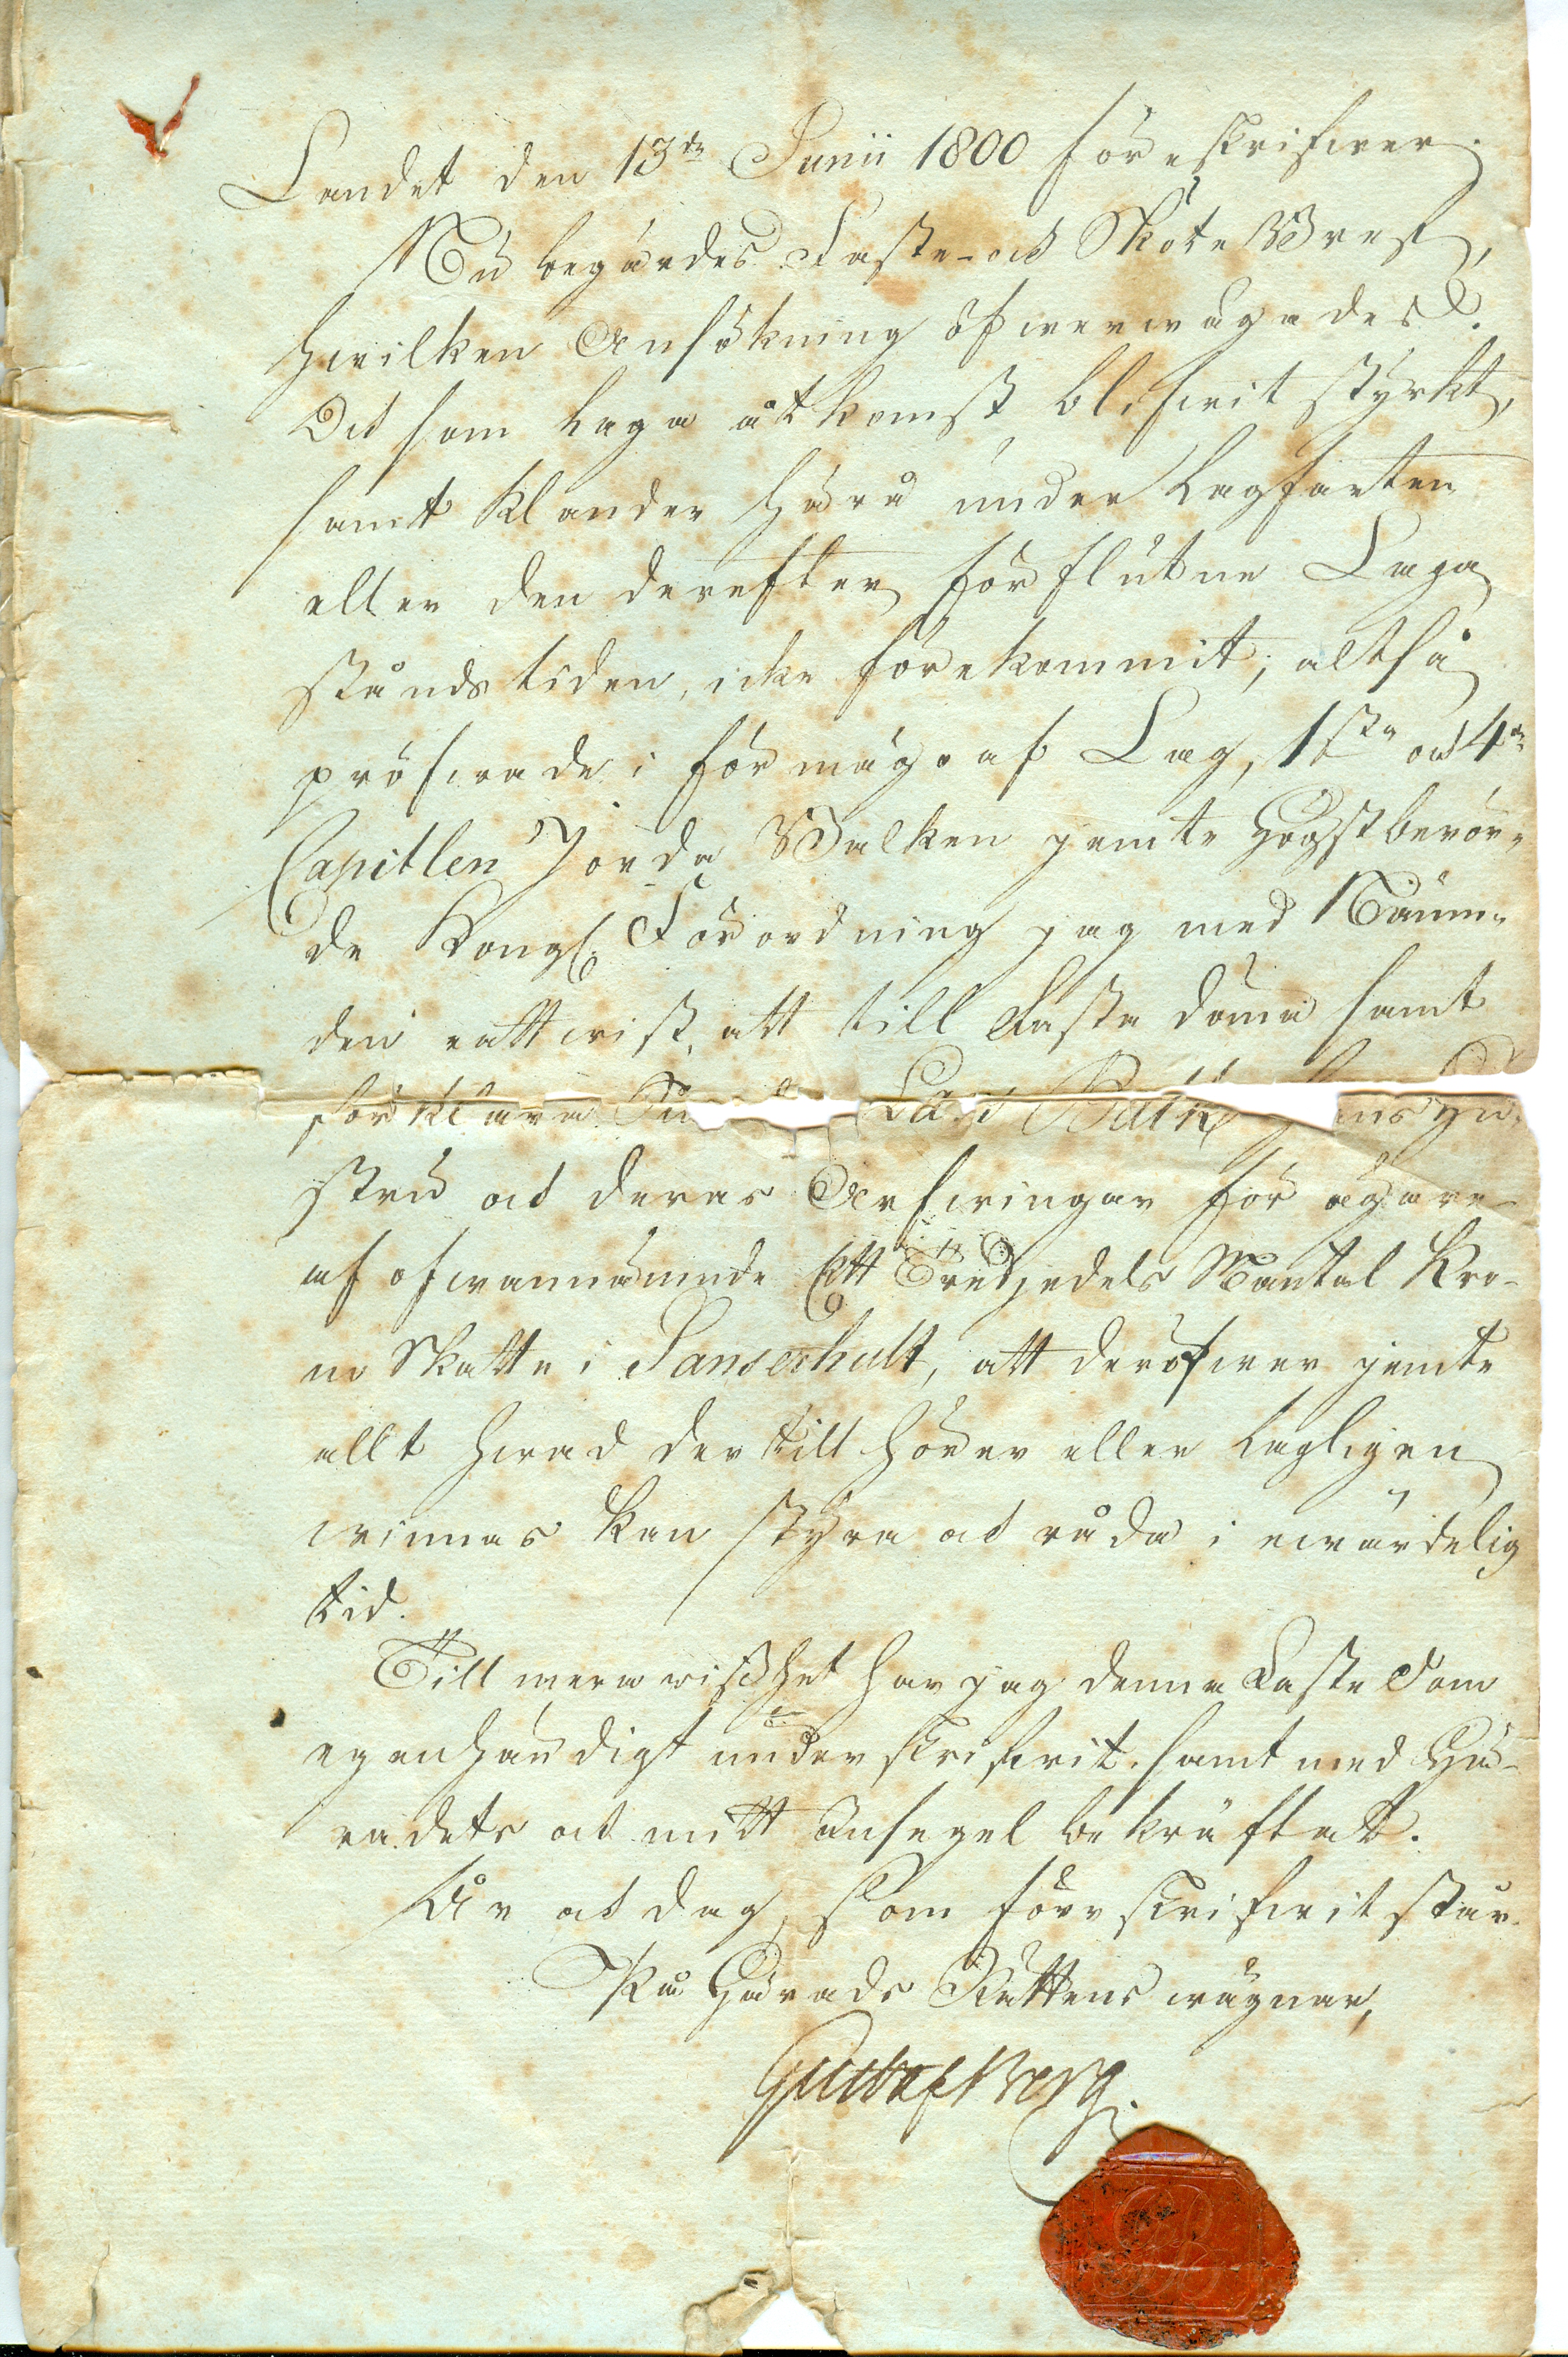 Landet den 13de Junii 1800 föreskrifwer.
Nu begärdes Faste- och Sköte Bref,
hwilken Ansökning öfwerwägades:
Och som laga åtkomst blifwit styrkt,
samt klander härå under Lagfarten
eller den derefter förflutne Laga
stånds tiden, icke förekommit; altså
pröfwade i förmågo af Lag, 1sta och 4de
Capitlen Jorda Balken jemte Högstberör-
de Kongl. Förordning jag med Nämn-
den rättwist, att till Fasta döma samt
förklara Lars hans Hu-
stru och deras Arfwingar för ägare
af ofwannämnde Ett Tredjedels Mantal Kro-
no Skatte i Panserhult, att deröfwer jemte
allt hwad dertill hörer eller lagligen
winnas kan styra och råda i ewärdelig
tid.
Till mera wisshet har jag denna Faste Dom
egenhändigt underskrifwit, samt med Hä-
radets och mitt Insegel bekräftat.
År och dag, som förr skrifwit står.
På Härads Rättens wägnar,
Gustaf Berg.